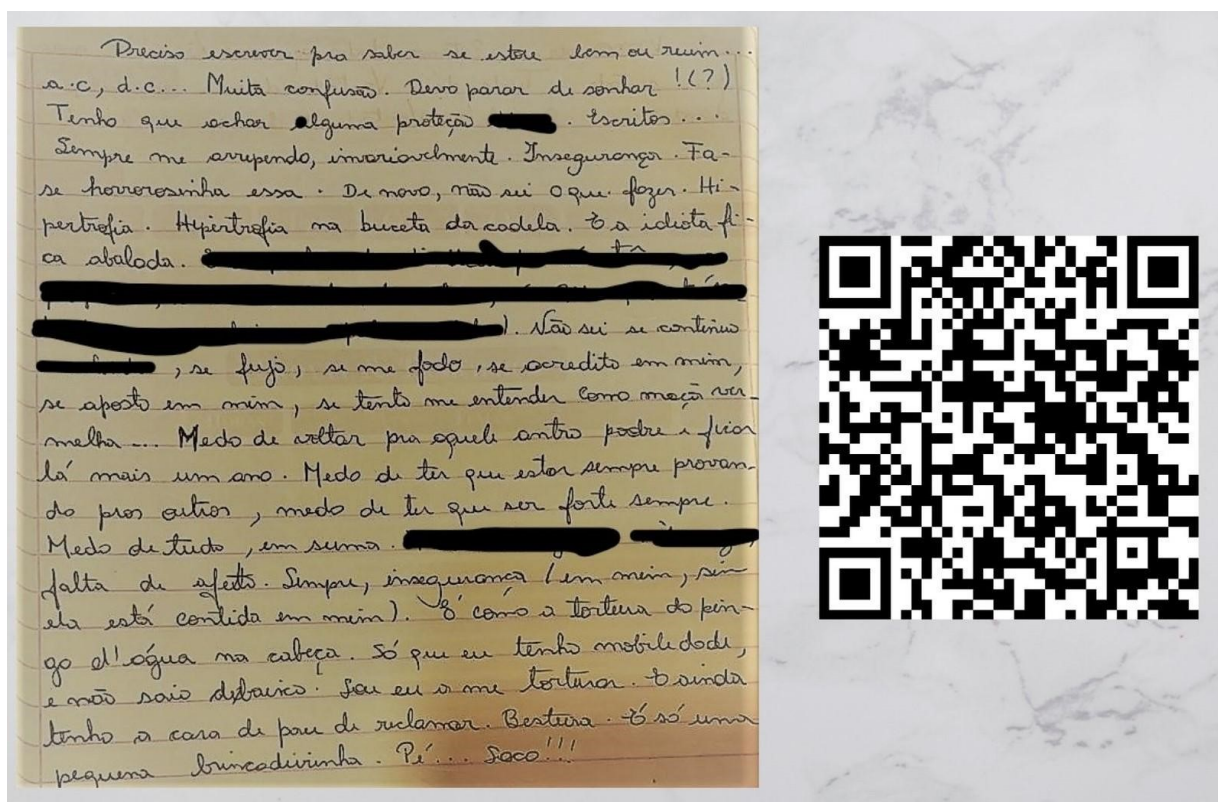 Preciso escrever pra saber se estou bem ou ruim...
a.c, d.c... Muita confusão. Devo parar de sonhar !(?)
Tenho que achar alguma proteção . Escritos...
Sempre me arrependo, invariavelmente. Insegurança. Fa-
se horrorosinha essa. De novo, não sei o que fazer. Hi-
pertrofia. Hipertrofia na buceta da cadela. E a idiota fi-
ca abalada.
). Não sei se continuo
, se fujo, se me fodo, se acredito em mim,
se aposto em mim, se tento me entender como maçã ver-
melha... Medo de voltar pra aquele antro podre e ficar
lá mais um ano. Medo de ter que estar sempre provan-
do pros outros, medo de ter que ser forte sempre.
Medo de tudo, em suma.
falta de afeto. Sempre, insegurança (em mim, sim
ela está contida em mim). É como a tortura do pin-
go d'água na cabeça. Só que eu tenho mobilidade,
e não saio debaixo. Sou eu a me torturar. E ainda
tenho a cara de pau de reclamar. Besteira. É só uma
pequena brincadeirinha. Pé... Saco!!!